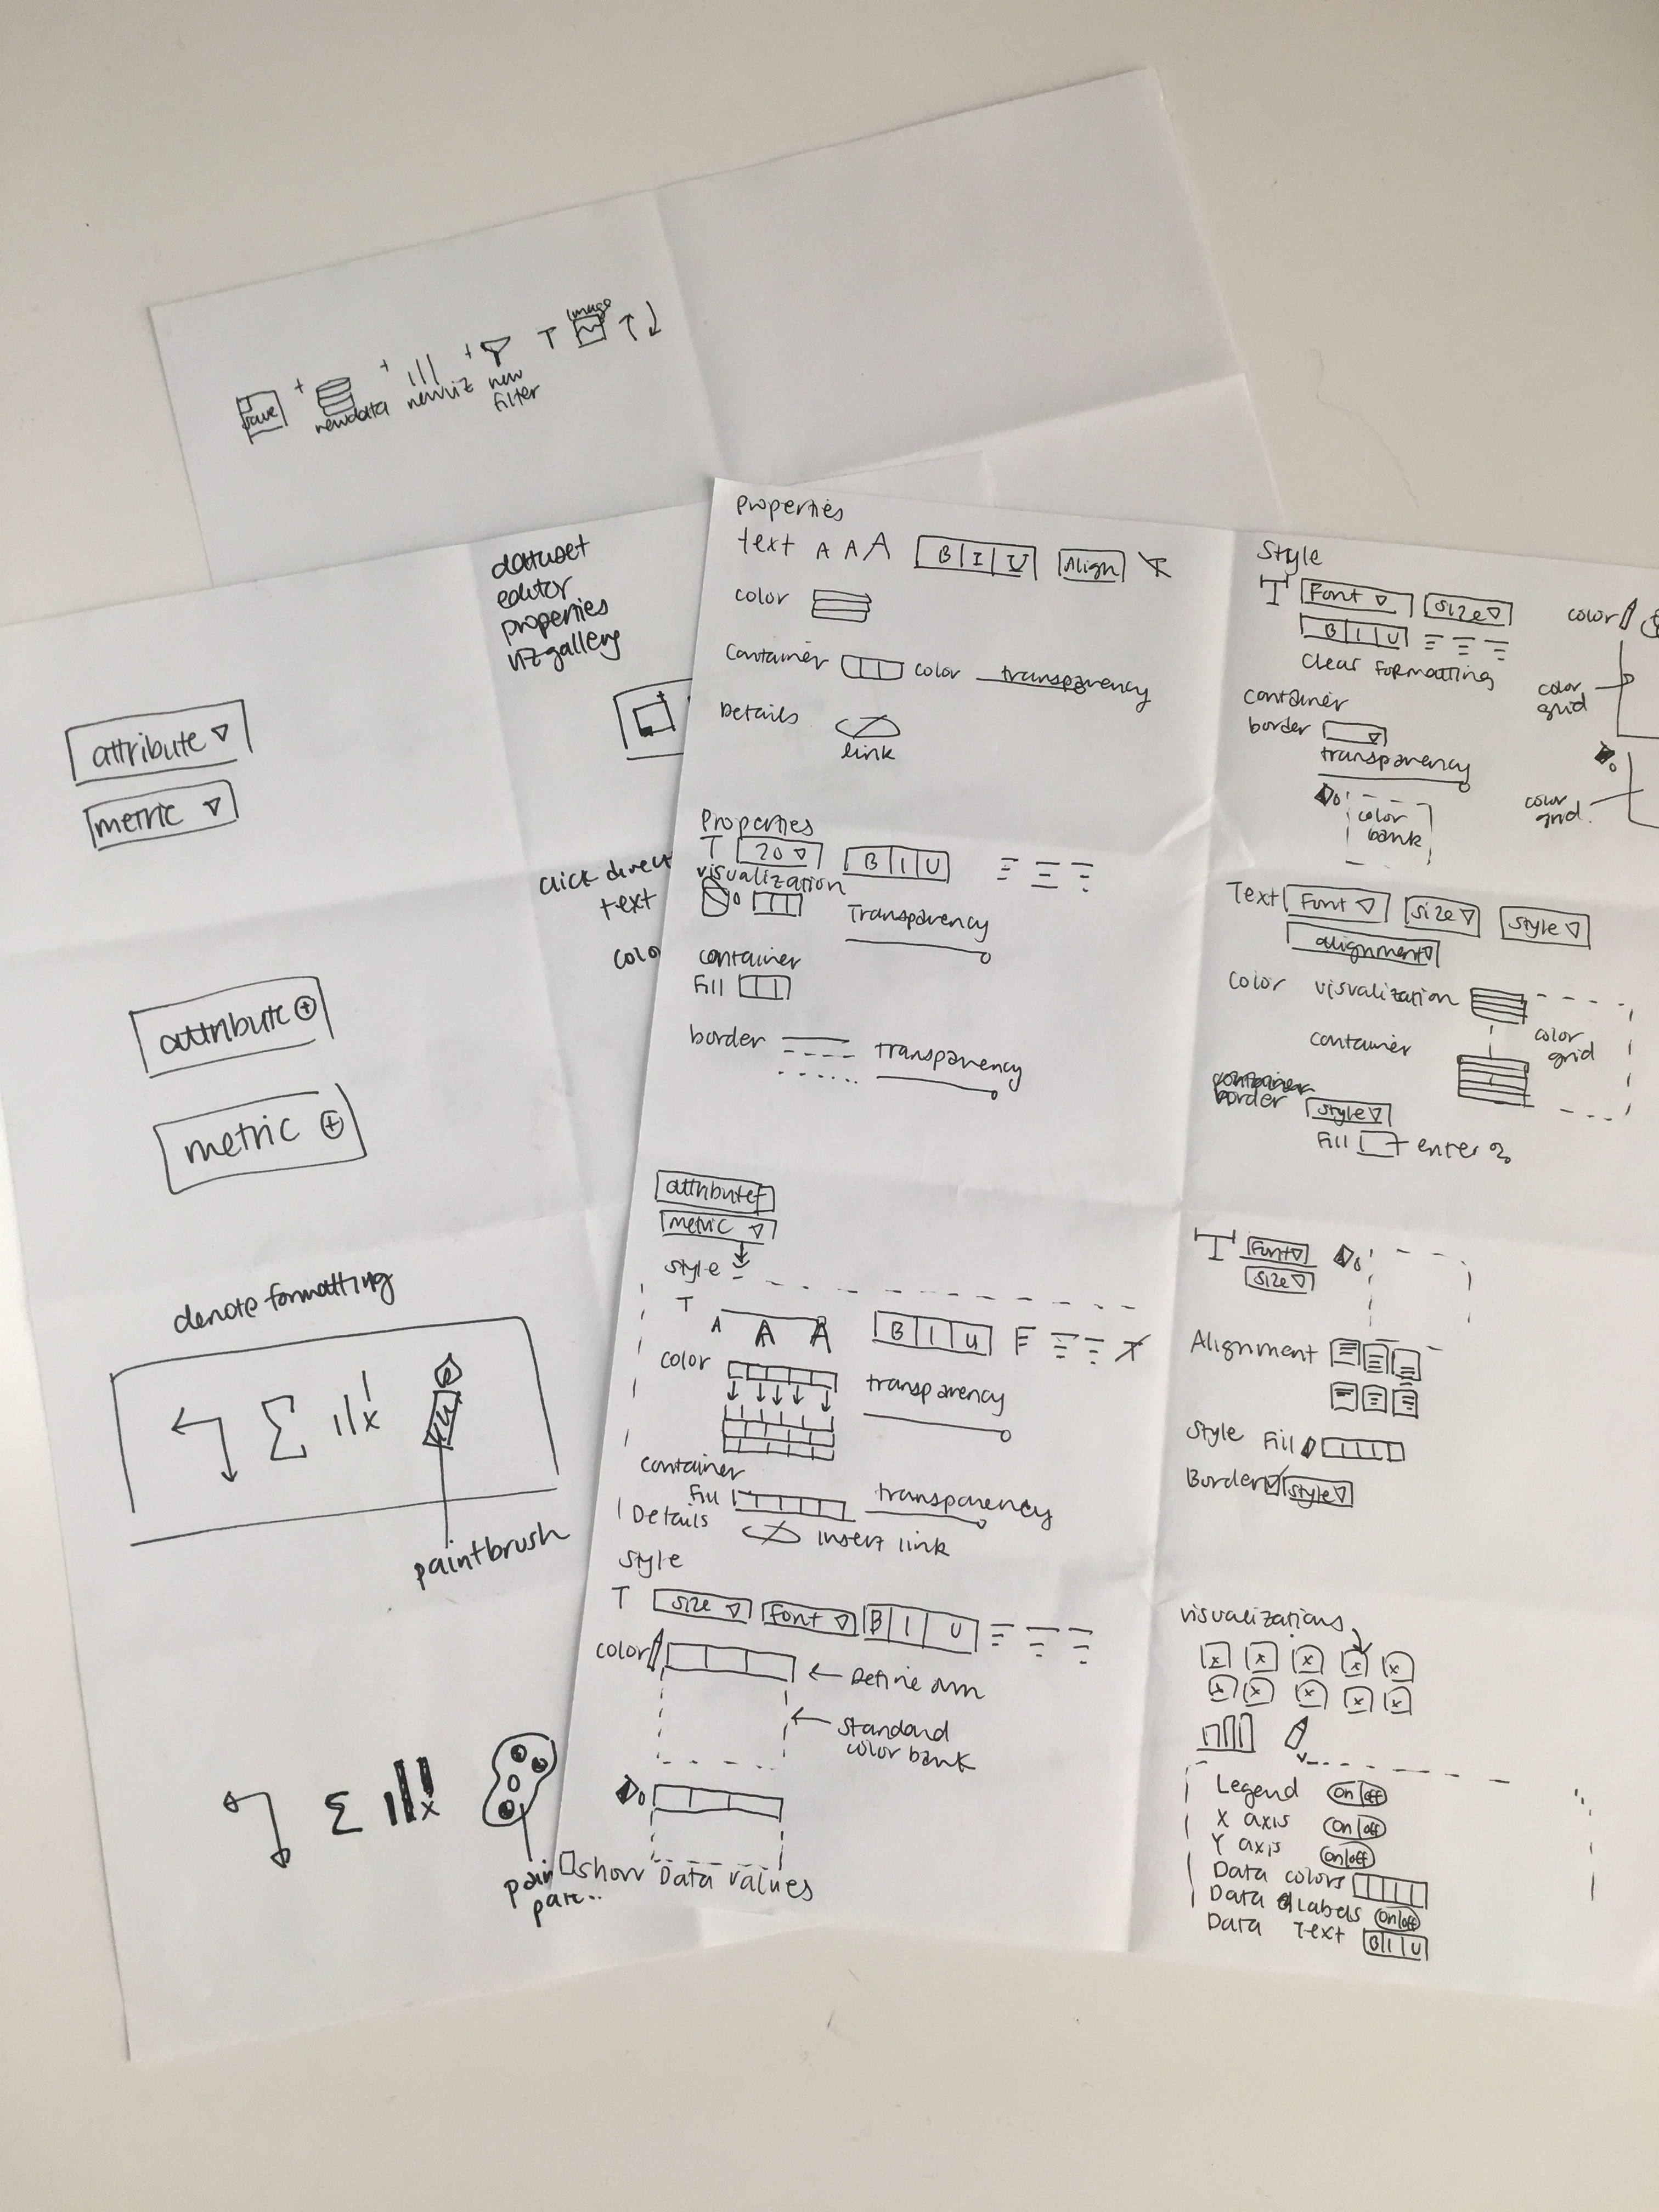 Image
save + newdata + newviz + new filter T
dataset
editor
properties
vizgallery
attribute
metric
click direct
text
colo
attribute +
metric +
denote formatting
Σ x
paintbrush
Σ x
Properties
text A A A B I U Align T
color
container color transparency
Details
link
Properties
T 20 B I U
visualization
Transparency
container
Fill
border transparency
attribute
metric
style
T
A A A B I U T
color
transparency
container
Fill transparency
Details insert link
Style
T size Font B I U
color
Define own
standard
color bank
show Data values
Style
T Font size
B I U
clear formatting
color
color
grid
container
border
transparency
color
bank
color
grid.
Text Font size style
alignment
color visualization
container
color
grid
border style
Fill enter %
T Font
size
Alignment
style Fill
Border style
visualizations
x x x x x
x x x x x
Legend on/off
X axis on/off
Y axis on/off
Data colors
Data labels on/off
Data Text B I U